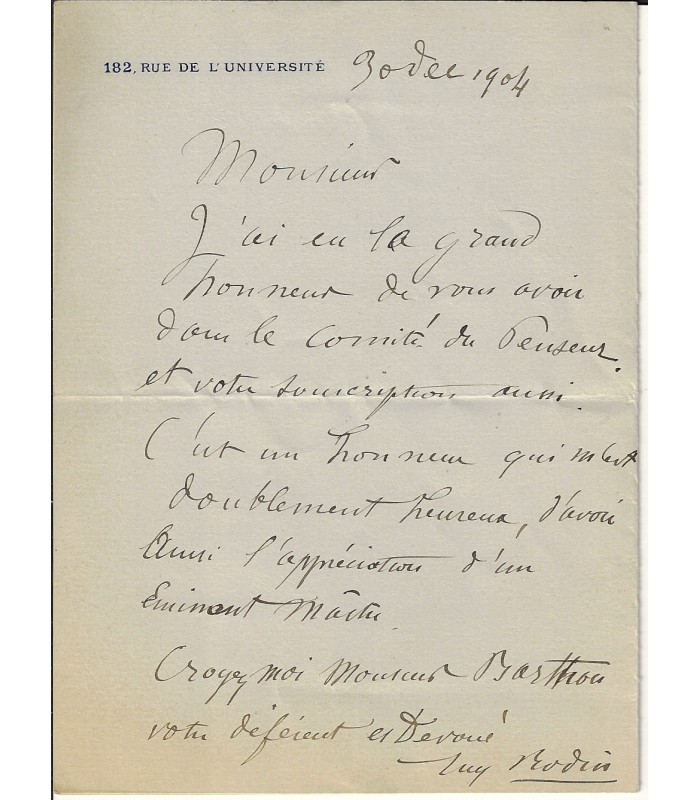 182, RUE DE L'UNIVERSITÉ 30 dec 1904
Monsieur
J'ai eu la grand
honneur de vous avoir
dans le comité du Penseur.
et votre souscription aussi.
C'est un honneur qui m'est
doublement heureux, d'avoir
Aussi l'appréciation d'un
Eminent Maître
Croyez moi Monsieur Barthou
votre déférent et Devoué
Aug Rodin